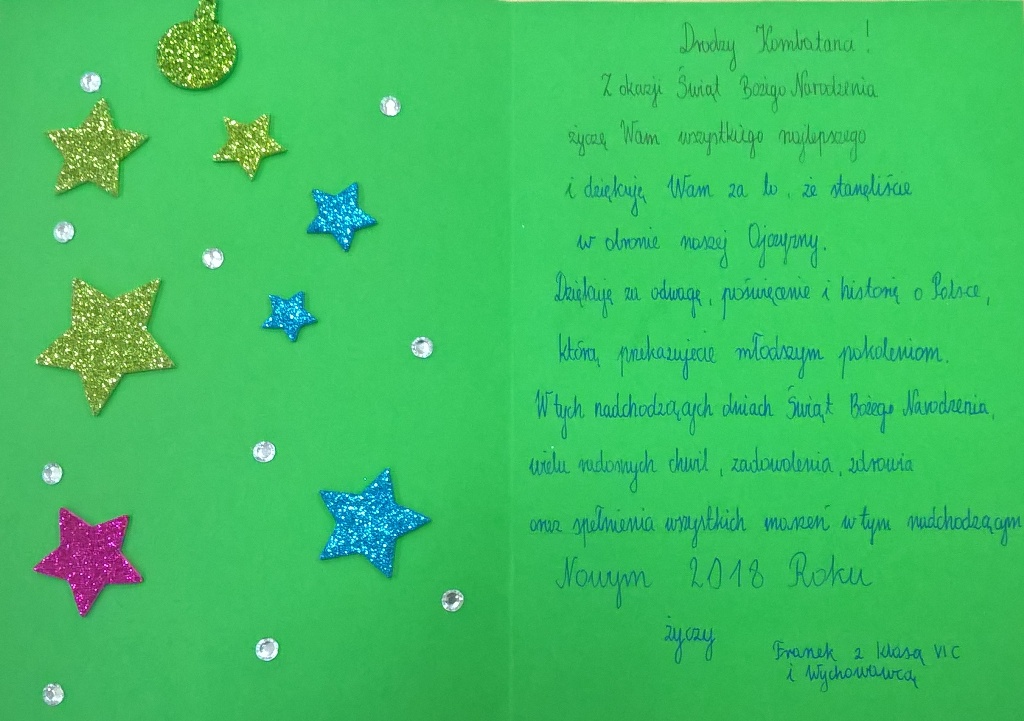 Drodzy Kombatanci!
Z okazji Świąt Bożego Narodzenia
życzę Wam wszystkiego najlepszego
i dziękuję Wam za to, że stanęliście
w obronie naszej Ojczyzny.
Dziękuję za odwagę, poświęcenie i historię o Polsce,
którą przekazujecie młodszym pokoleniom.
W tych nadchodzących dniach Świąt Bożego Narodzenia,
wielu radosnych chwil, zadowolenia, zdrowia
oraz spełnienia wszystkich marzeń w tym nadchodzącym
Nowym 2018 Roku
życzy
Franek z klasą VI C
i Wychowawcą